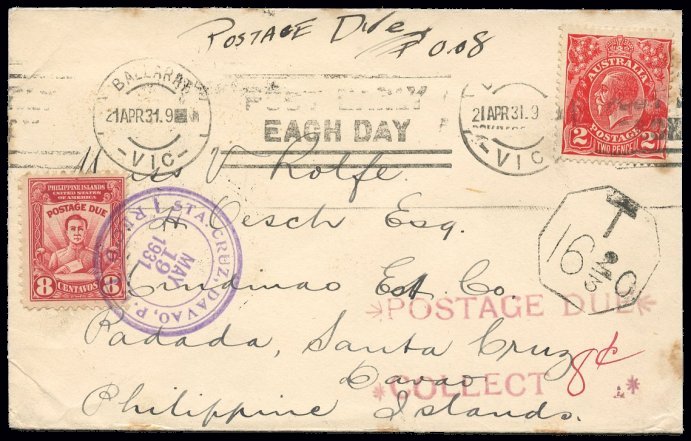 POSTAGE Due
₱0.08
BALLARAT
21APR31.9
VIC
POST EARLY
EACH DAY
21APR31.9
VIC
AUSTRALIA
2 2
POSTAGE
TWO PENCE
Miss V Rolfe.
PHILIPPINE ISLANDS
UNITED STATES
OF AMERICA
POSTAGE DUE
8 8
CENTAVOS
STA. CRUZ, DAVAO, P.
MAY
19
1931
H Oesch Esq.
T
16 2/3 0
Co.
POSTAGE DUE
Padada, Santa Cruz
8¢
Davao
COLLECT
Philippine Islands.